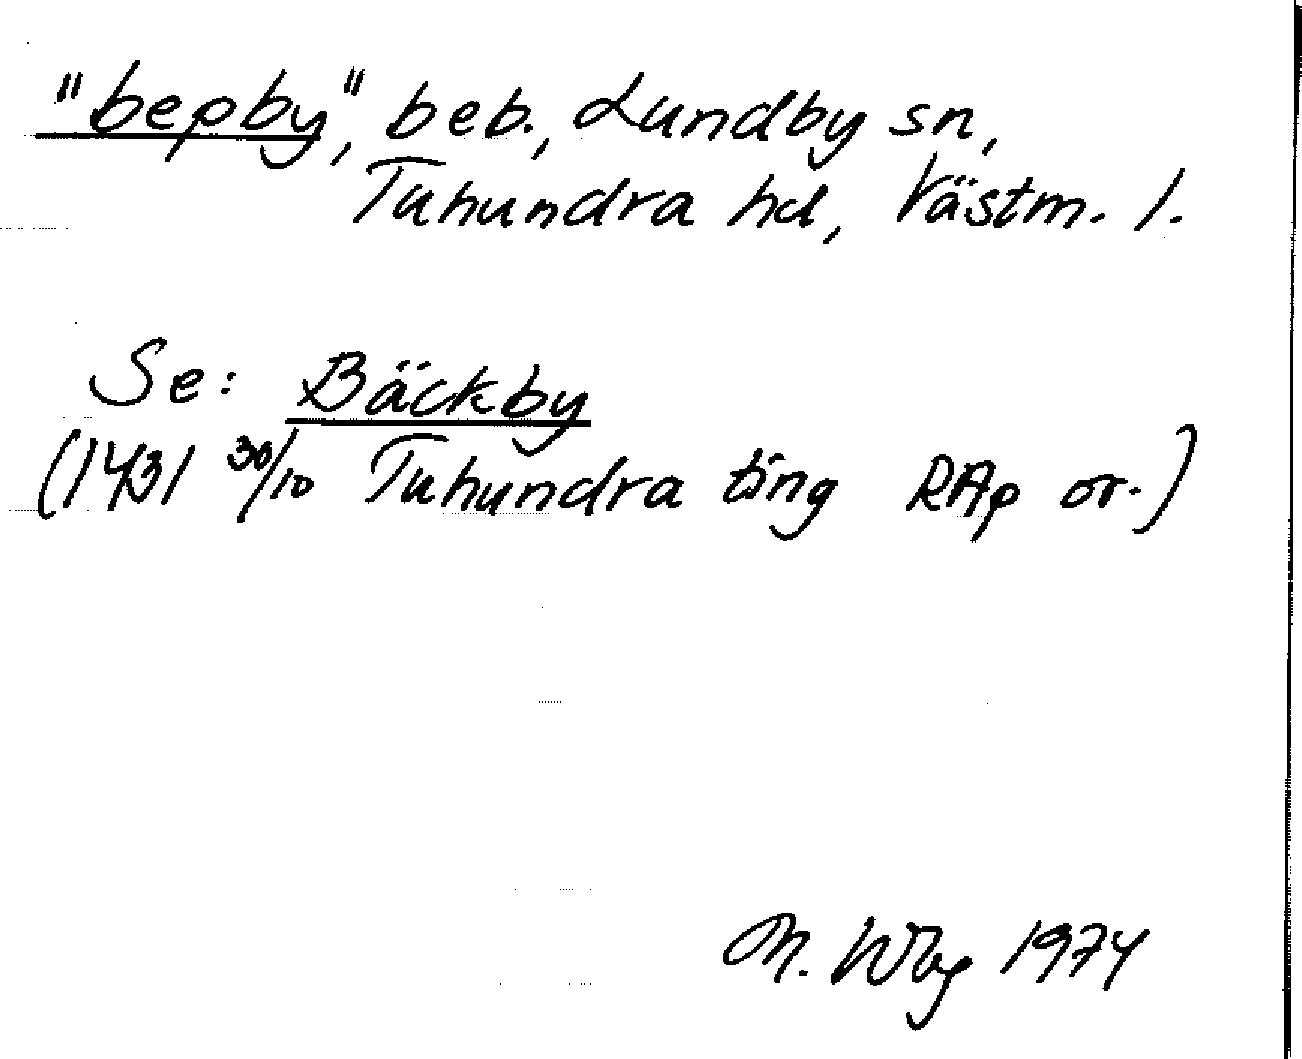 "bepby", beb., Lundby sn,
Tuhundra hd, Västm. l.
Se: Bäckby
(1431 30/10 Tuhundra ting RAp or.)
M. Wbg 1974